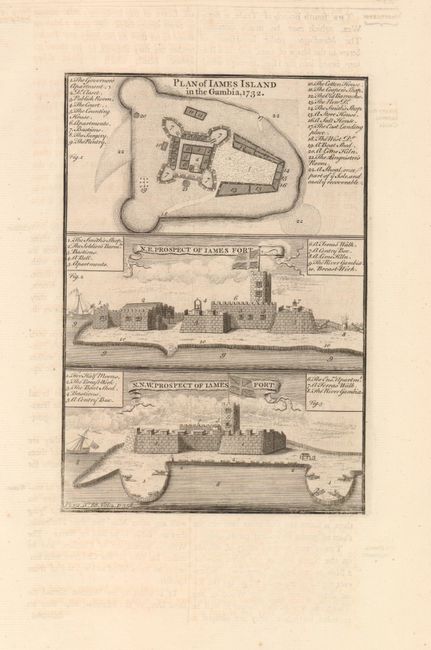 PLAN of IAMES ISLAND
in the Gambia, 1732.
1. The Governors
Apartment
2. Do. Closet
3. Publick Room
4. The Court
5. The Counting
House
6. Apartments
7. Bastions
9. The Pantry
Fig. 1
10. The Cotton House
11. The Coopers Shop
12. The Old Barracks
13. The New Do.
14. The Smiths Shop
15. A Store House
16. A Salt House
17. The East Landing
place
18. The West Do.
19. A Boat Shed
20. A Lime Kiln
22. The Linguisters
Room
22. A Shoal, once
part of ye Isle, and
easily recoverable
N.E. PROSPECT OF IAMES FORT
1. The Smiths Shop
2. The Soldiers Barracs
3. Bastions
4. A Bell
5. Apartments
Fig. 2
6. A Terras Walk
7. A Centry Box
8. A Lime Kiln
9. The River Gambia
10. Breast Work
N.N.W. PROSPECT OF IAMES FORT
3. The Boat Shed
4. Bastions
5. A Centry Box
7. A Terras Walk
8. The River Gambia
Fig. 3